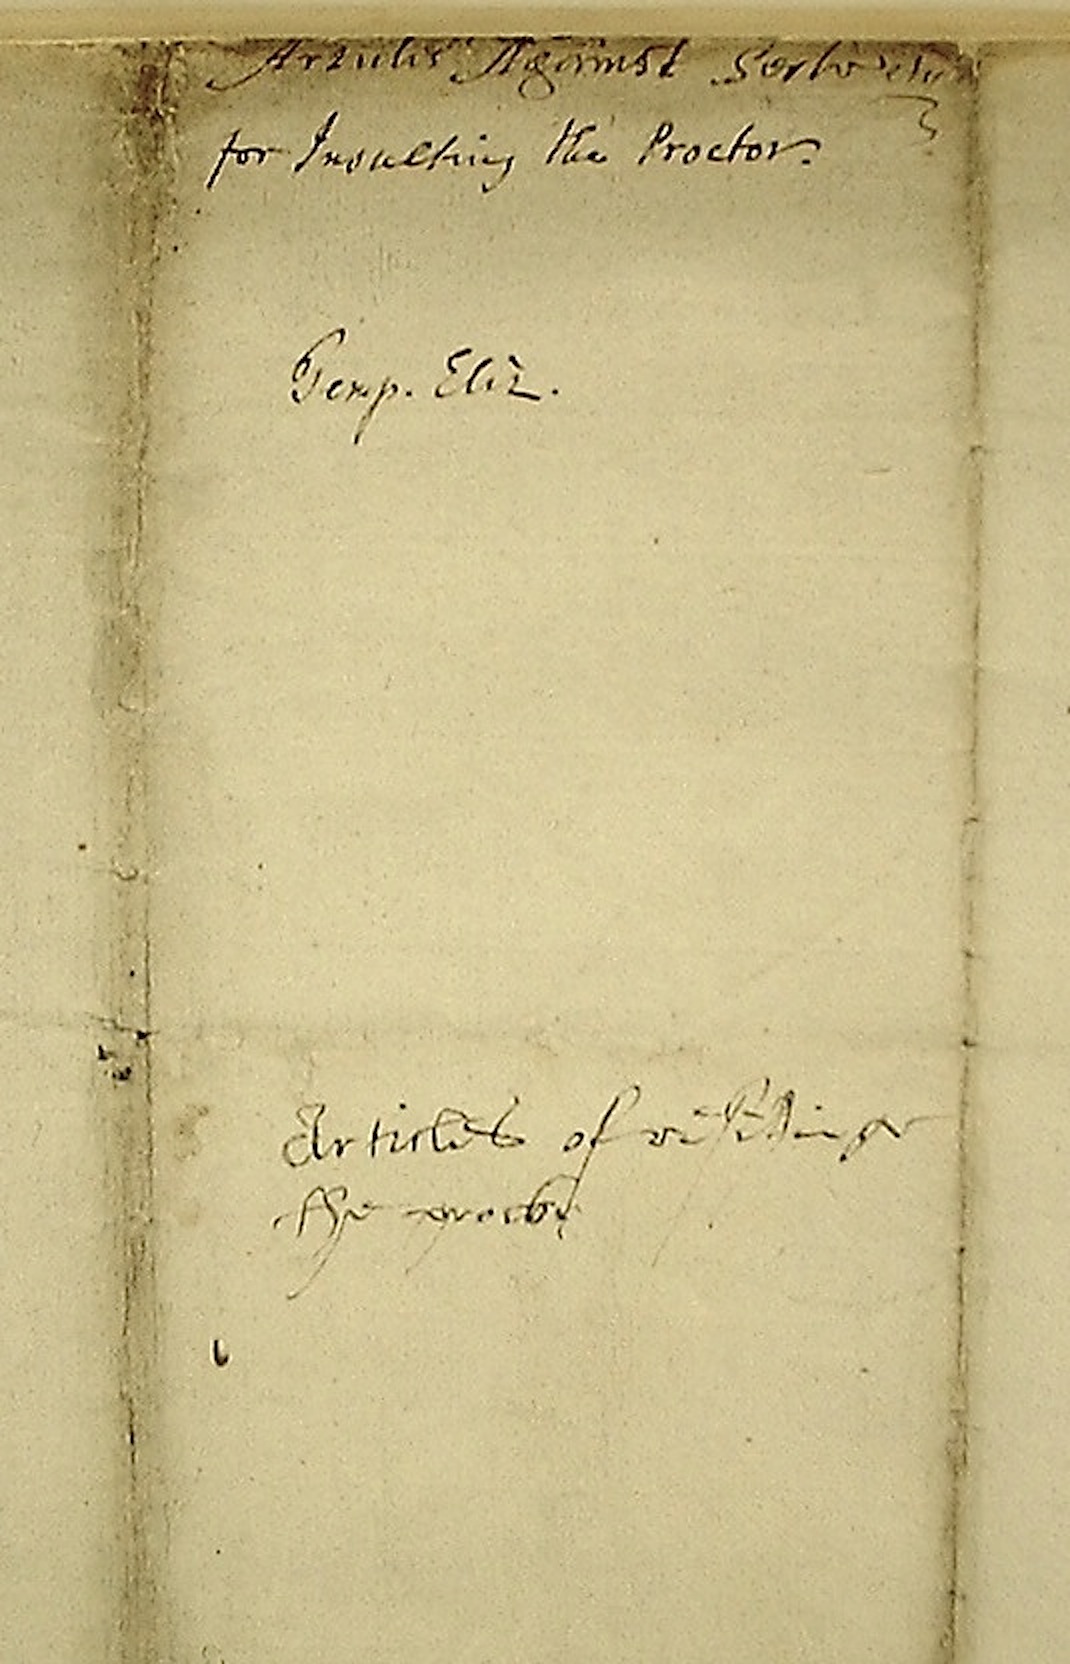 Articles Against
for Insulting the Proctor.
Temp. Eliz.
Articles of resisting
the procter